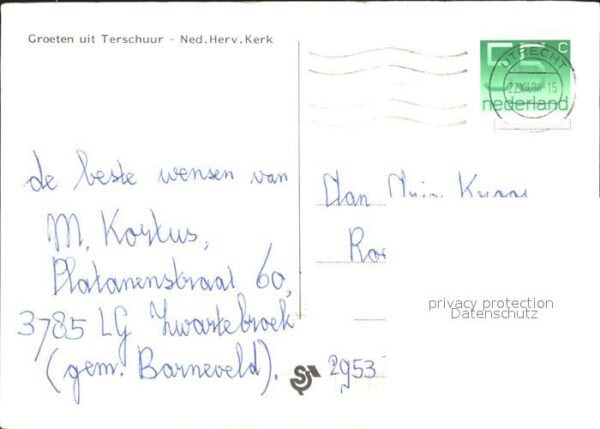 Groeten uit Terschuur - Ned.Herv.Kerk
55 c
nederland
UTRECHT
de beste wensen van
M. Kortus,
Platanenstraat 60,
3785 LG Zwartebroek
(gem. Barneveld).
Aan
privacy protection
Datenschutz
2953